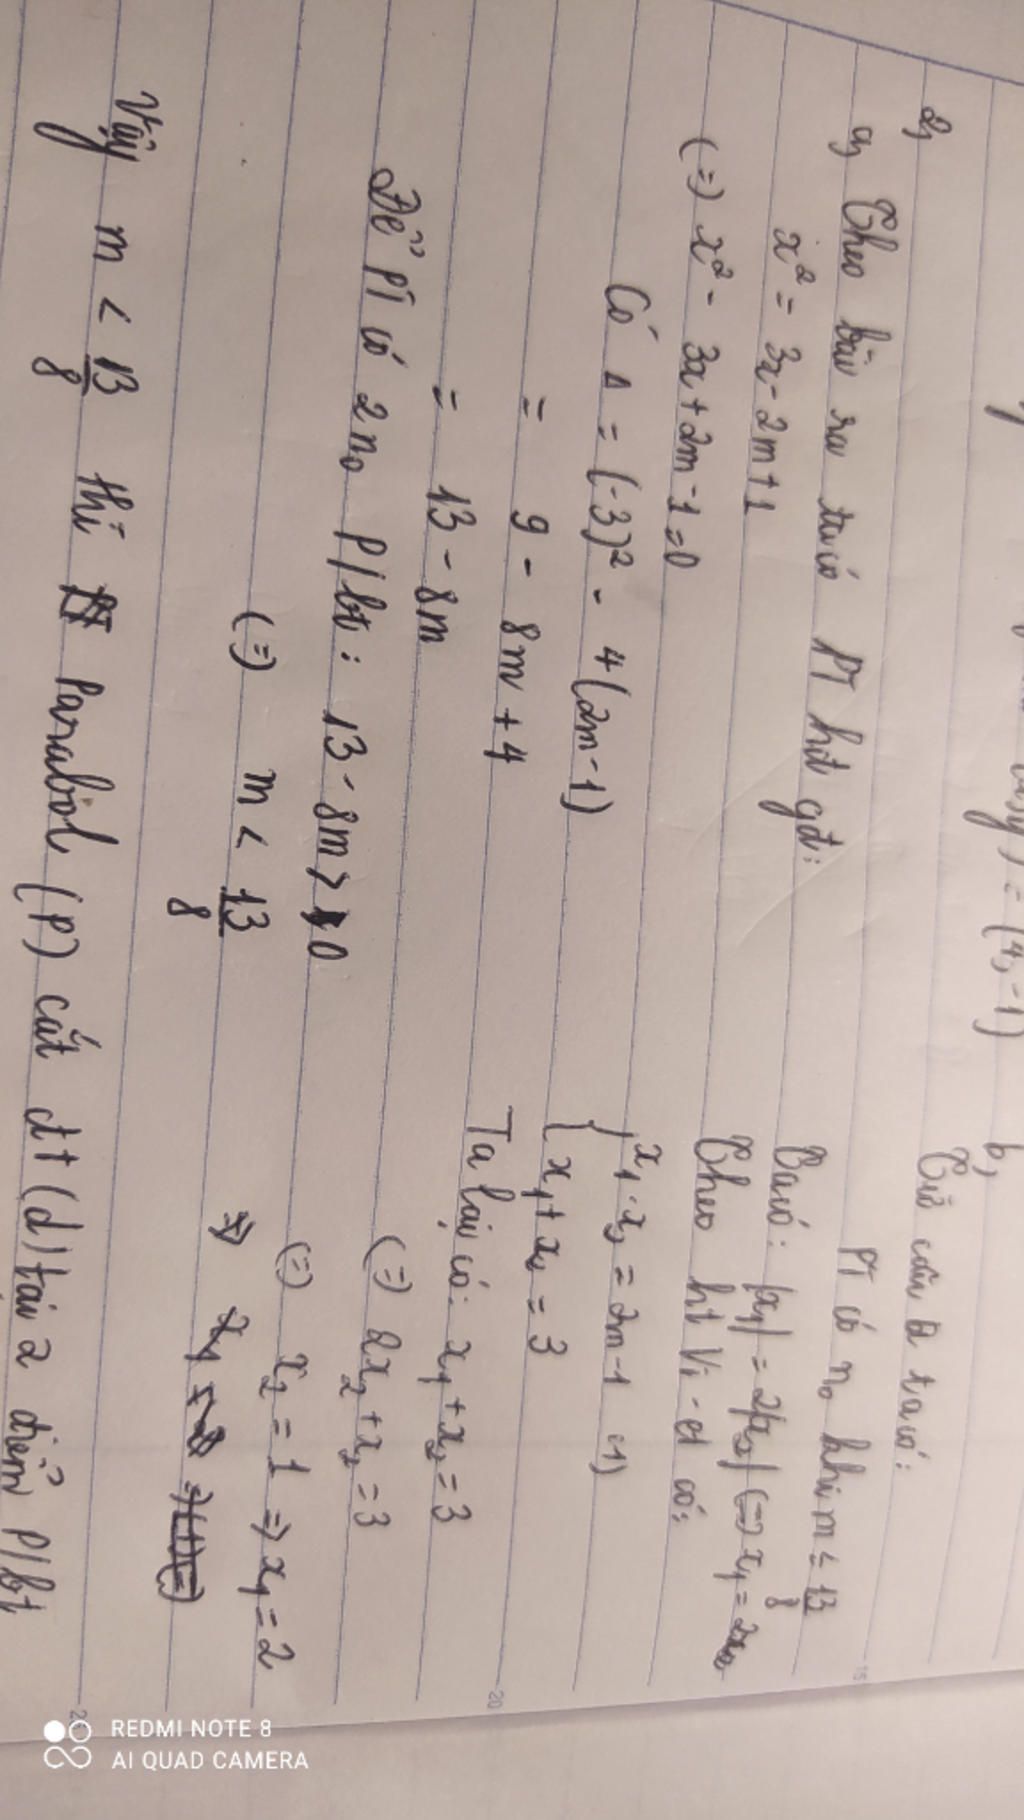 2,
a, Theo bài ra ta có PT hđ gđ:
x² = 3x - 2m + 1
(=) x² - 3x + 2m - 1 = 0
Có Δ = (-3)² - 4(2m - 1)
= 9 - 8m + 4
= 13 - 8m
Để PT có 2 n₀ p/bt: 13 - 8m > 0
(=) m < 13/8
Vậy m < 13/8 thì Parabol (P) cắt đt (d) tại 2 điểm p/bt
= (4; -1)
b,
Từ câu a ta có:
PT có n₀ khi m ≤ 13/8
Ta có: |x₁| = 2|x₂| (=) x₁ = 2x₂
Theo ht Vi-et có:
{ x₁ . x₂ = 2m - 1 (1)
{ x₁ + x₂ = 3
Ta lại có: x₁ + x₂ = 3
(=) 2x₂ + x₂ = 3
(=) x₂ = 1 => x₁ = 2
=>
15
20
25
REDMI NOTE 8
AI QUAD CAMERA